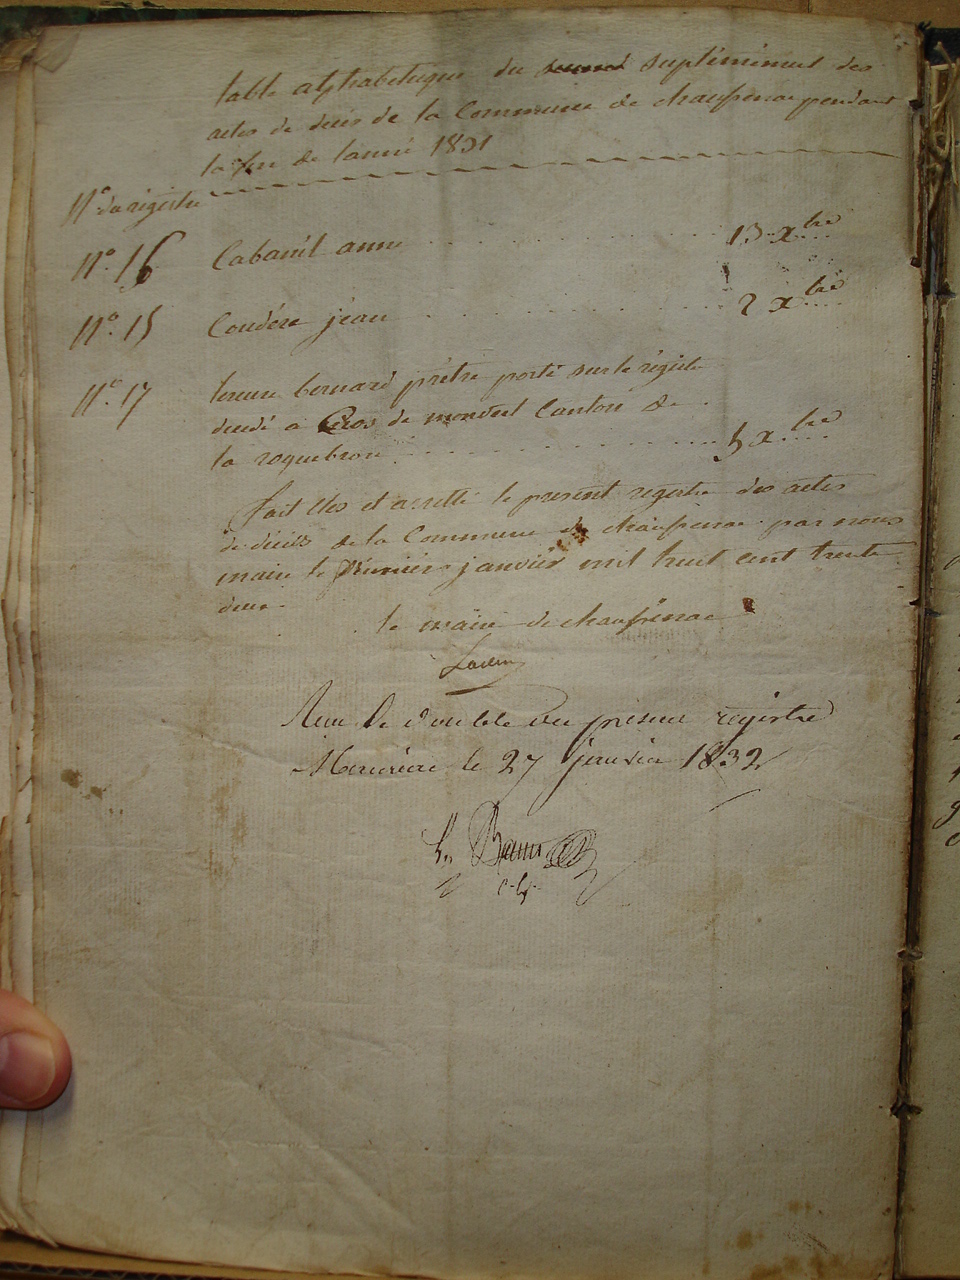 table alphabetique du second suplément des
actes de décés de la Commune de chaussenac pendant
la fin de l'année 1831
N° du régistre
N°. 16 Cabanil anne 13 xbre
N°. 15 Coudére jéan 2 xbre
N°. 17 bernard prétre porté sur le régistre
décédé a Cros de montvert Canton de
la roquebrou 5 xbre
fait Clos et arretté le présent régistre des actes
de décés de la Commune de chaussenac par nous
maire le premier janvier mil huit cent trente
deux.
le maire de chaussenac
Reçu le double du présent registre
Mauriac le 27 janvier 1832